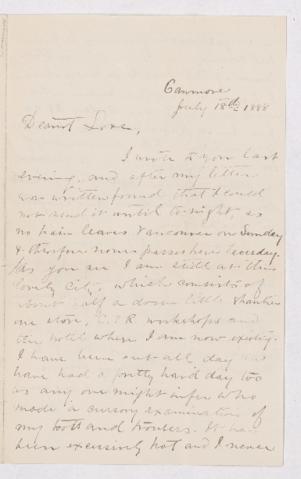 Canmore
July 18th 1888
Dearest Love,
I wrote to you last
evening, and after my letter
was written found that I could
not send it until to-night, as
no train leaves Vancouver on Sunday
& therefore none passes here Tuesday.
As you see I am still at this
lovely city, which consists of
about half a dozen little shanties
one store, C.P.R workshops and
the hotel where I am now existing.
I have been out all day and
have had a pretty hard day too
as any one might infer who
made a cursory examination of
my boots and trousers. It has
been excessively hot and I never